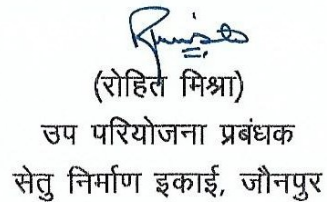 (रोहित मिश्रा)
उप परियोजना प्रबंधक
सेतु निर्माण इकाई, जौनपुर